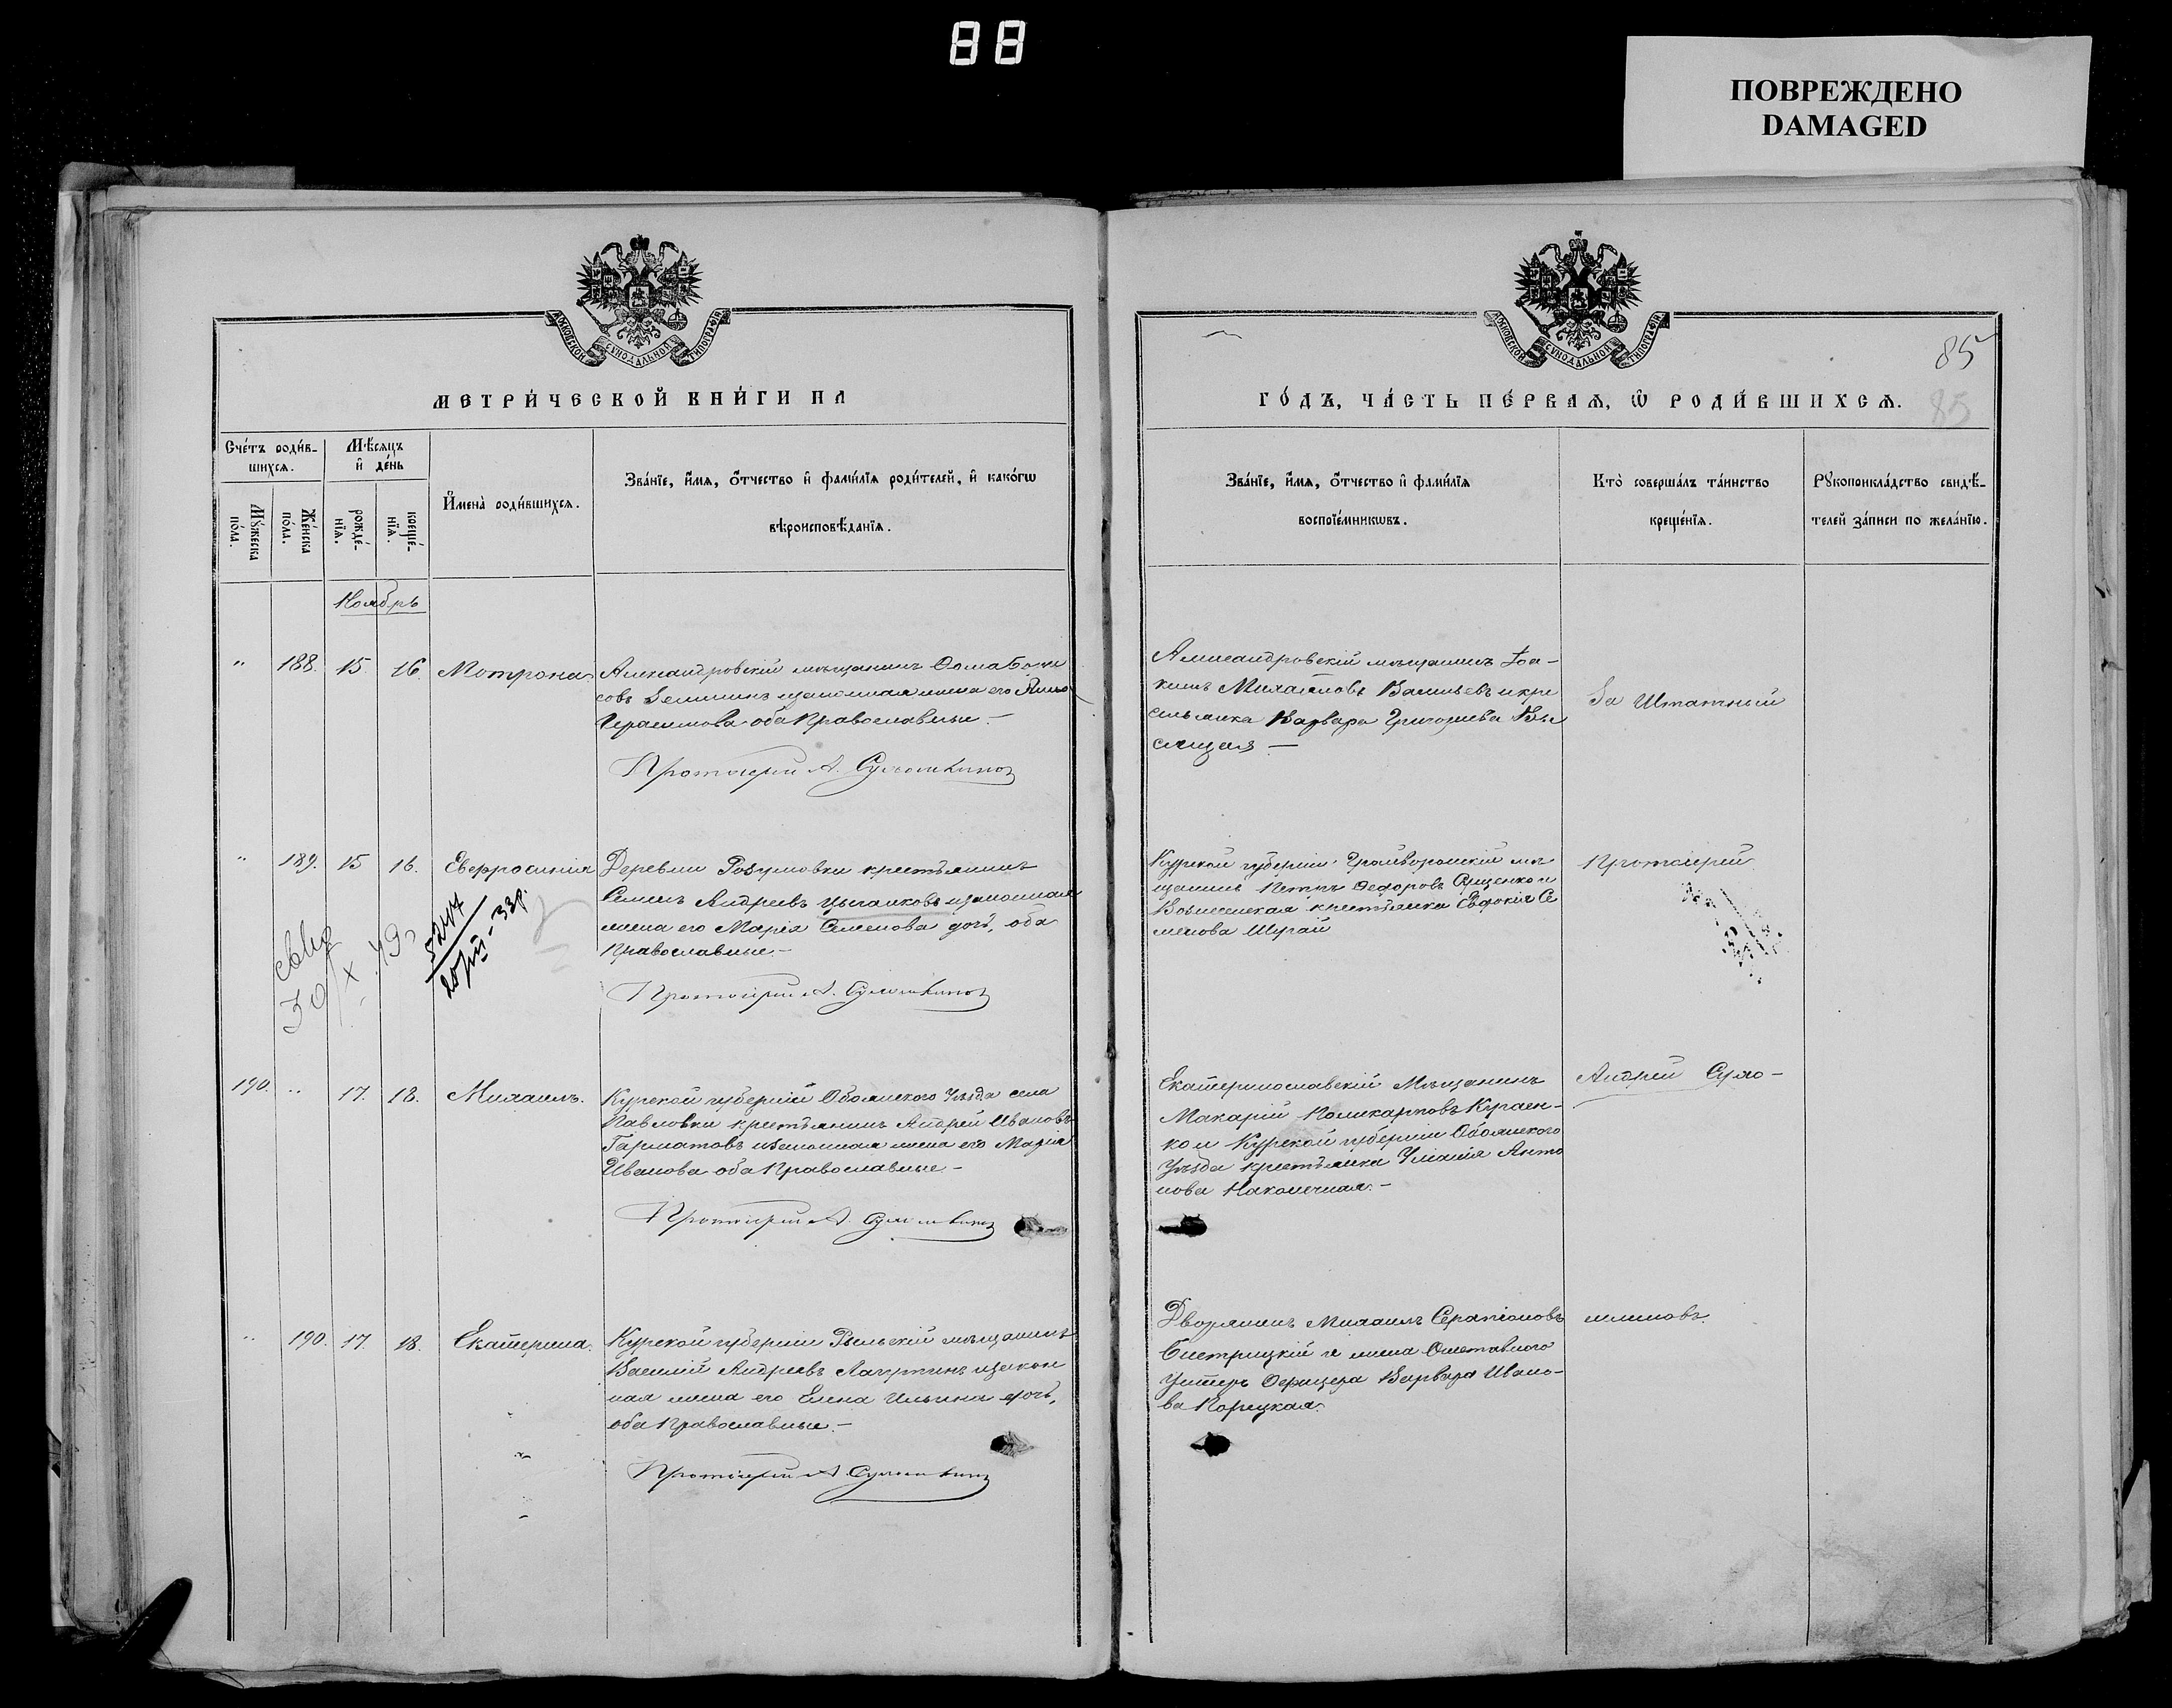 88
ПОВРЕЖДЕНО
DAMAGED
МОСКОВСКОЙ СѴНОДАЛЬНОЙ ТИПОГРАФІИ
МЕТРИ́ЧЕСКОЙ КНИ́ГИ НА
Сче́тъ роди́в-
шихсѧ.
Мꙋ́жеска по́ла.
Же́нска по́ла.
Мѣ́сѧцъ
и҆ де́нь
рожде́-
нїѧ.
креще́-
нїѧ.
И҆мена̀ роди́вшихсѧ.
Зва́нїе, и҆́мѧ, ѻ҆́тчество и҆ фами́лїѧ роди́телей, и҆ како́гѡ
вѣроисповѣ́данїѧ.
Ноябрь
" 188. 15. 16. Мотрона
Александровскій мѣщанинъ Ѳома Бори
совъ Демминъ и законная жена его Анна
Герасимова оба Православные. —
Протоіерей А.
" 189. 15 16. Евфросинія
Деревни Розумовки крестьянинъ
Семенъ Андреевъ Цыганковъ и законная
жена его Марія Семенова дочь, оба
Православные. —
Протоіерей А.
30/X 49
190. " 17. 18. Михаилъ.
Курской губерніи Обоянскаго Уѣзда села
Павловки крестьянинъ Андрей Ивановъ
Гарматовъ и законная жена его Марія
Иванова оба Православные —
Протоіерей А.
" 190. 17. 18. Екатерина.
Курской губерніи Рыльскій мѣщанинъ
Василій Андреевъ Лагутинъ и закон
ная жена его Елена Ильина дочь,
оба Православные. —
Протоіерей А.
МОСКОВСКОЙ СѴНОДАЛЬНОЙ ТИПОГРАФІИ
85
ГО́ДЪ, ЧА́СТЬ ПЕ́РВАѦ, Ѡ҆ РОДИ́ВШИХСѦ.
85
Зва́нїе, и҆́мѧ, ѻ҆́тчество и҆ фами́лїѧ
воспрїе́мникѡвъ.
Кто̀ соверша́лъ та́инство
креще́нїѧ.
Рꙋкоприкла́дство свидѣ́-
телей за́писи по жела́нїю.
Александровскій мѣщанинъ Іоа-
кимъ Михайловъ Васильевъ и кре
стьянка Варвара Григорьева Вы
соцкая —
За Штатный
Курской губерніи Грайворонскій мѣ
щанинъ Петръ Ѳедоровъ и
Вознесенская крестьянка Евфокія Се
менова Шурай
Протоіерей
Екатеринославскій Мѣщанинъ
Макарій Поликарповъ
ко и Курской губерніи Обоянскаго
Уѣзда крестьянка Уліанія Анто
нова Наконечная. —
Андрей Суло-
Дворянинъ Михаилъ Серапіоновъ
Бистрицкій и жена Отставного
Унтеръ Офицера Варвара Ивано-
ва Корецкая.